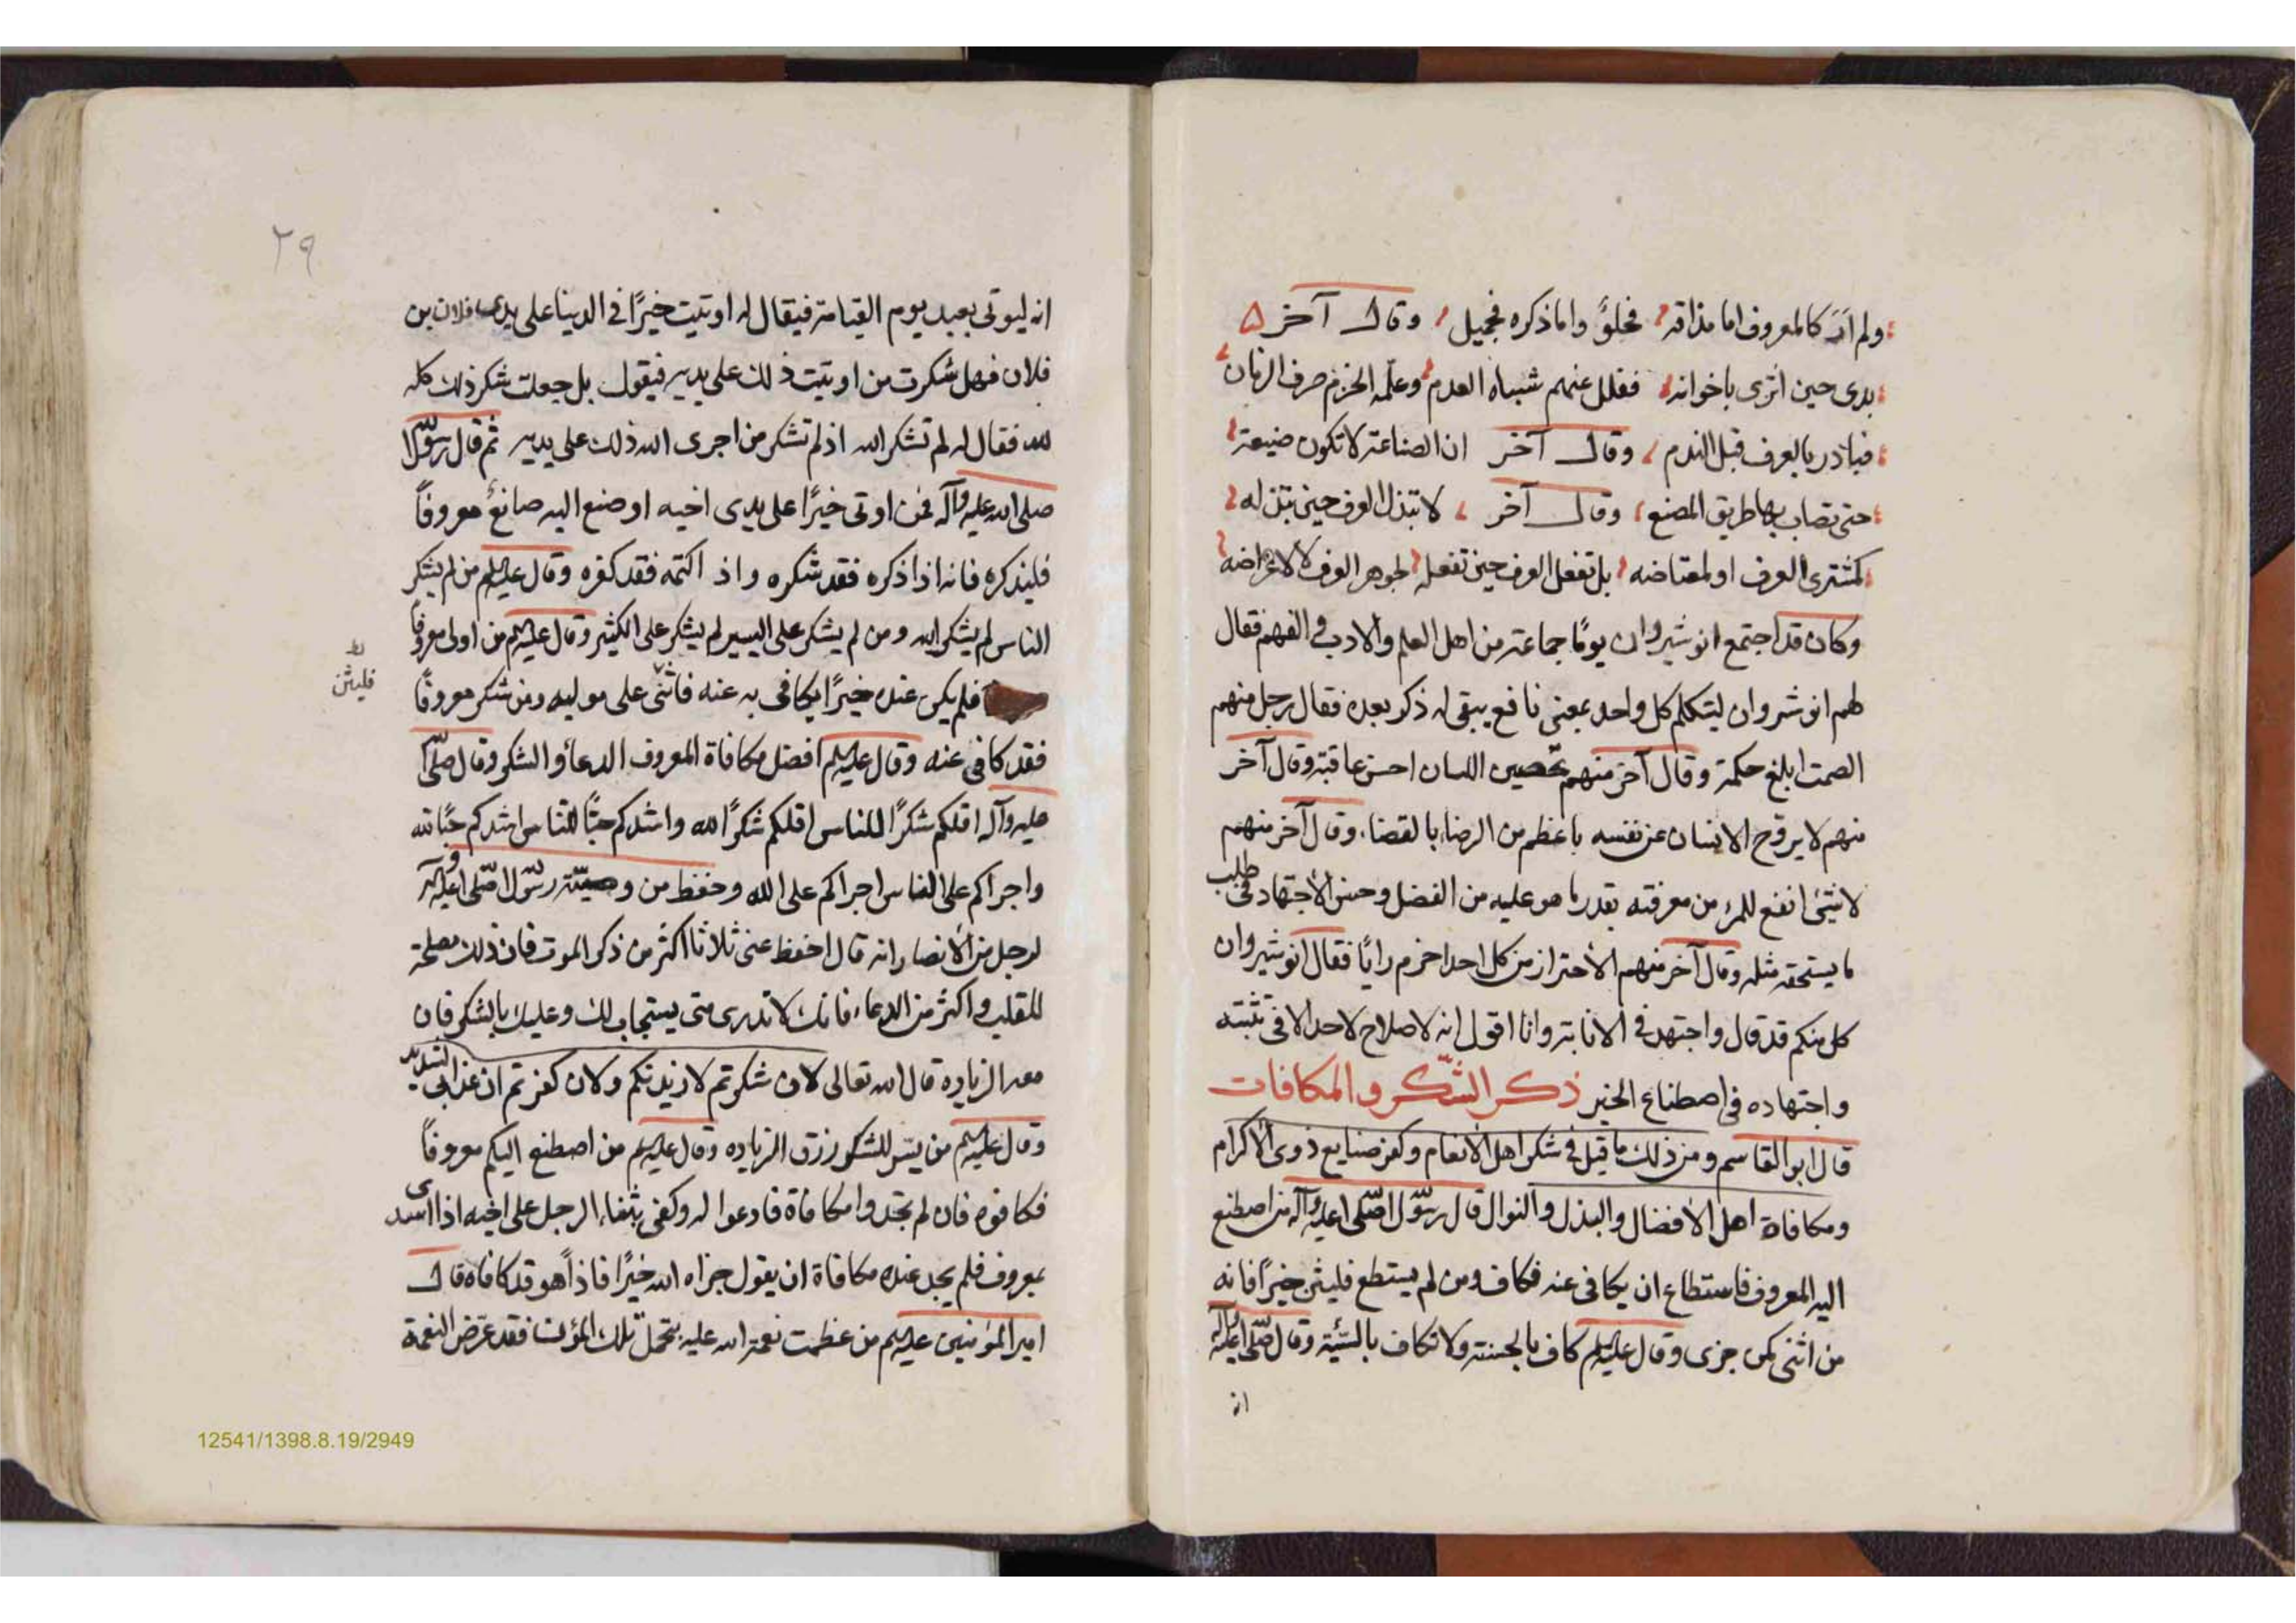 ولم أرَ كالمعروف اما مذاقه فحلوٌ واما ذكره فجميل وقال آخر
بدى حين اثرى باخوانه ففلل عنهم شباه العدم وعلّمه الحزم صرف الزمان
فبادر بالعرف قبل الندم وقال آخر ان الصناعة لا تكون صنيعة
حتى تصاب بها طريق المصنع وقال آخر لا تبذل العرف حين تبذله
كمشترى العرف او لمعتاضه بل تفعل العرف حين تفعله لجوهر العرف لا لاعراضه
وكان قد اجتمع انوشيروان يومًا جماعة من اهل العلم والادب و الفهم فقال
لهم انوشروان ليتكلم كل واحد بمعنى نافع يبقى له ذكر بعده فقال رجل منهم
الصمت ابلغ حكمة وقال آخر منهم تحصين اللسان احسن عاقبة وقال آخر
منهم لا يروّح الانسان عن نفسه باعظم من الرضاء بالقضاء، وقال آخر منهم
لا شيئ انفع للمرء من معرفته بقدر ما هو عليه من الفضل وحسن الاجتهاد فى طلب
ما يستحقه مثله وقال آخر منهم الاحتراز من كل احد احزم رايًا فقال انوشيروان
كل منكم قد قال واجتهد فى الانابة وانا اقول انه لا صلاح لاحد الا فى تثبته
واجتهاده فى اصطناع الخير ذكر الشّكر والمكافات
قال ابو القاسم ومن ذلك ما قيل فى شكر اهل الانعام وكفر صنايع ذوى الاكرام
ومكافاة اهل الافضال والبذل والنوال قال رسول الله صلى الله عليه وآله من اصطنع
اليه المعروف فاستطاع ان يكافى عنه فكاف ومن لم يستطع فليثن خيرًا فانه
من اثنى كمن جزى وقال عليه السلم كاف بالحسنة ولا تكاف بالسّيّئة وقال صلى الله عليه وآله
انه
٢٩
انه ليوتى بعبد يوم القيامة فيقال له اوتيت خيرًا فى الدينا على يدى فلان بن
فلان فهل شكرت من اوتيت ذلك على يديه فيقول بل جعلت شكر ذلك كله
لله فقال له لم تشكر الله اذ لم تشكر من اجرى الله ذلك على يديه ثم قال رسول الله
صلى الله عليه وآله فمن اوتى خيرًا على يدى اخيه او صنع اليه صانع معروفًا
فليذكره فانه اذا ذكره فقد شكره واذ اكتمه فقد كفره وقال عليه السلم من لم يشكر
الناس لم يشكر الله ومن لم يشكر على اليسير لم يشكر على الكثير وقال عليه السلم من اولى معروفًا
فلم يكن عنده خيرًا يكافى به عنه فاثنى على موليه ومن شكر معروفًا
فليثن
فقد كافى عنه وقال عليه السلم افضل مكافاة المعروف الدعاء والشكر وقال صلى الله
عليه وآله اقلكم شكرًا للناس اقلكم شكرًا لله واشدكم حبًّا للناس اشدكم حبًّا لله
واجراكم على الناس اجراكم على الله وحفظ من وصيّة رسول الله صلى الله عليه وآله
لرجل من الانصار انه قال احفظ عنى ثلاثا اكثر من ذكر الموت فان ذلك مصلحة
للقلب واكثر من الدعاء فانك لا تدرى متى يستجاب لك وعليك بالشكر فان
معه الزياده قال الله تعالى لان شكرتم لازيدنكم ولان كفرتم ان عذابى لشديد
وقال عليه السلم من يسّر للشكر رزق الزياده وقال عليه السلم من اصطنع اليكم معروفًا
فكافوه فان لم تجدوا مكافاة فادعوا له وكفى بثناء الرجل على اخيه اذا اسدى
بمعروف فلم يجد عنده مكافاة ان يقول جزاه الله خيرًا فاذاً هو قد كافاه قال
امير المؤمنين عليه السلم من عظمت نعمة الله عليه تحمل تلك المؤنت فقد عرّض النعمة
12541/1398.8.19/2949